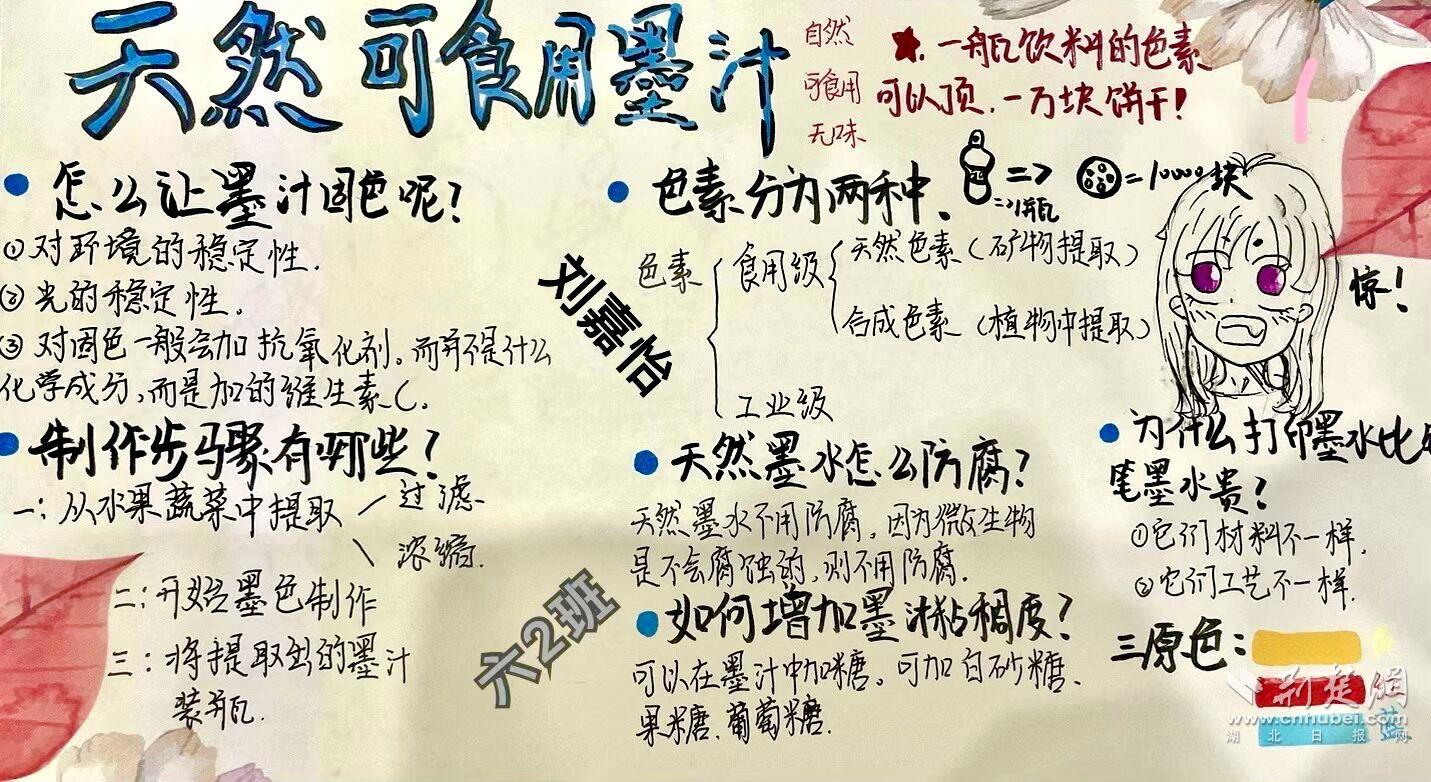 天然可食用墨汁
自然
可食用
无味
一瓶饮料的色素
可以顶.一万块饼干!
怎么让墨汁固色呢?
①对环境的稳定性.
②光的稳定性。
③对固色一般会加抗氧化剂。而并不是什么
化学成分,而是加的维生素C.
制作步骤有哪些?
一:从水果蔬菜中提取
过滤.
浓缩.
二:开始墨色制作
三:将提取出的墨汁
装瓶.
刘嘉怡
六2班
色素分为两种.
=>
=>1瓶
=10000块
色素
食用级
天然色素(矿物提取)
合成色素(植物中提取)
工业级
惊!
天然墨水怎么防腐?
天然墨水不用防腐,因为微生物
是不会腐蚀的,则不用防腐.
如何增加墨汁粘稠度?
可以在墨汁中加糖。可加白砂糖、
果糖.葡萄糖.
为什么打印墨水比
笔墨水贵?
①它们材料不一样.
②它们工艺不一样.
三原色:
蓝
荆楚网
www.cnhubei.com
湖北日报网